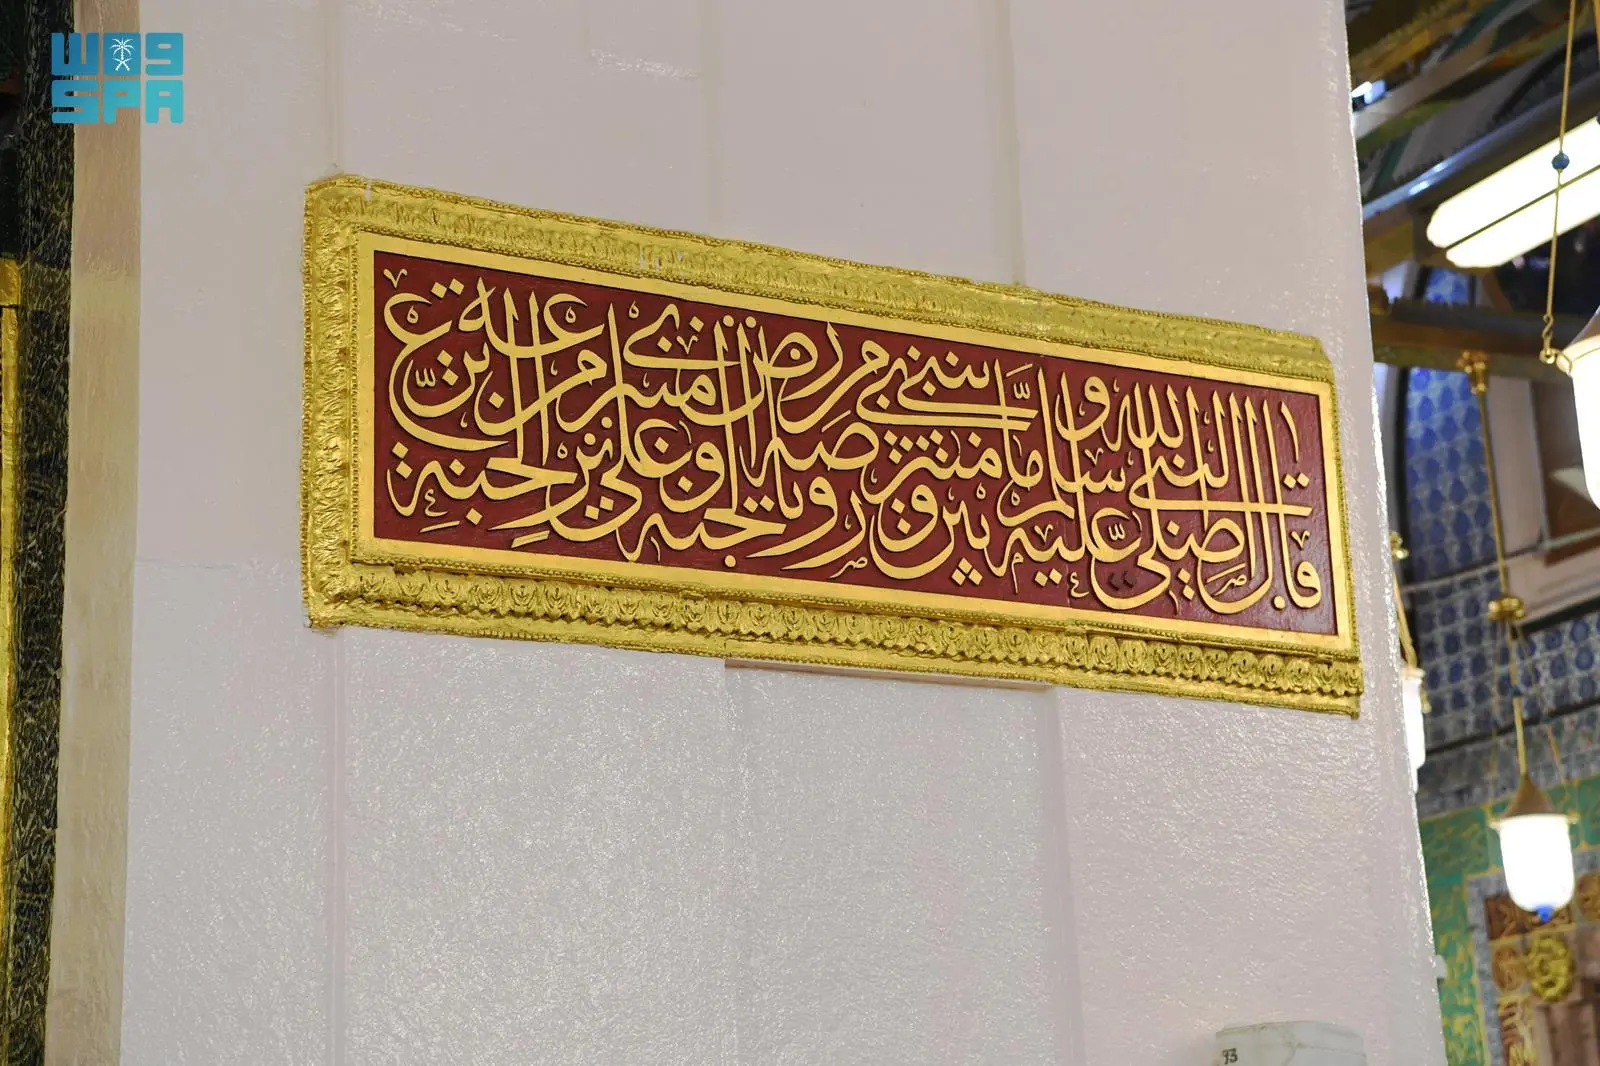 واس
SPA
قال النبي صلى الله عليه وسلم ما بين بيتي ومنبري روضة من رياض الجنة ومنبري على ترعة من ترع الجنة
93